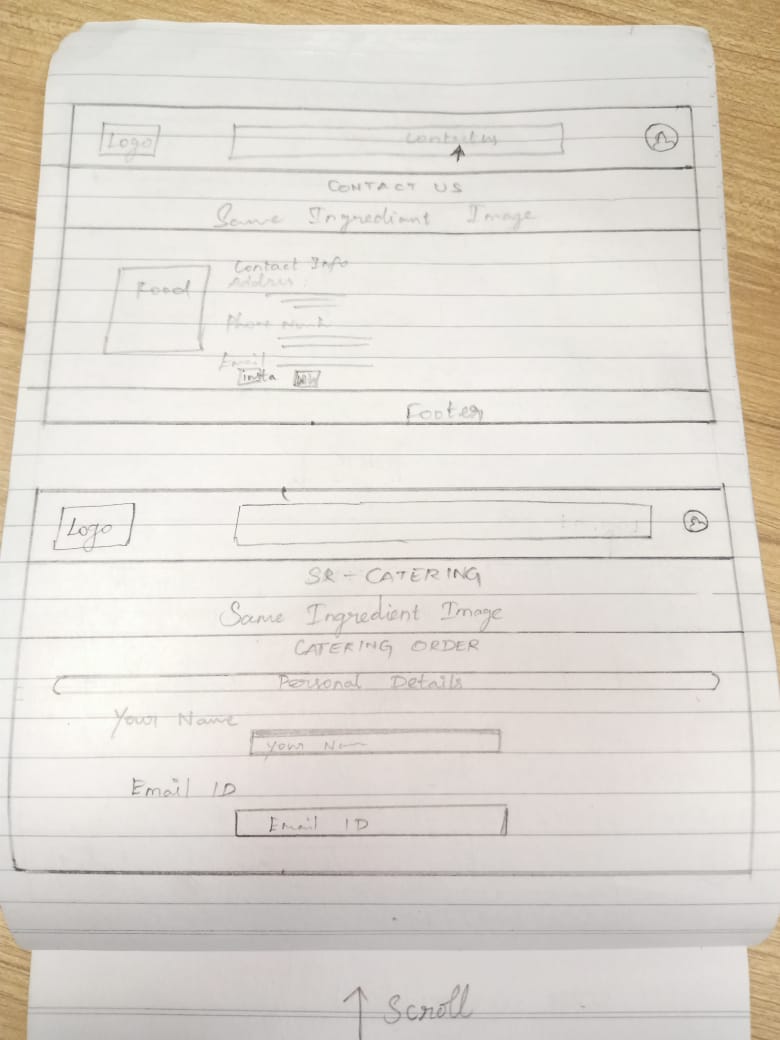 Logo
Contact us
CONTACT US
Same Ingrediant Image
Food
Contact Info
Address:
Phone
Email
insta
Footer
Logo
SR - CATERING
Same Ingredient Image
CATERING ORDER
Personal Details
Your Name
Your
Email ID
Email ID
Scroll